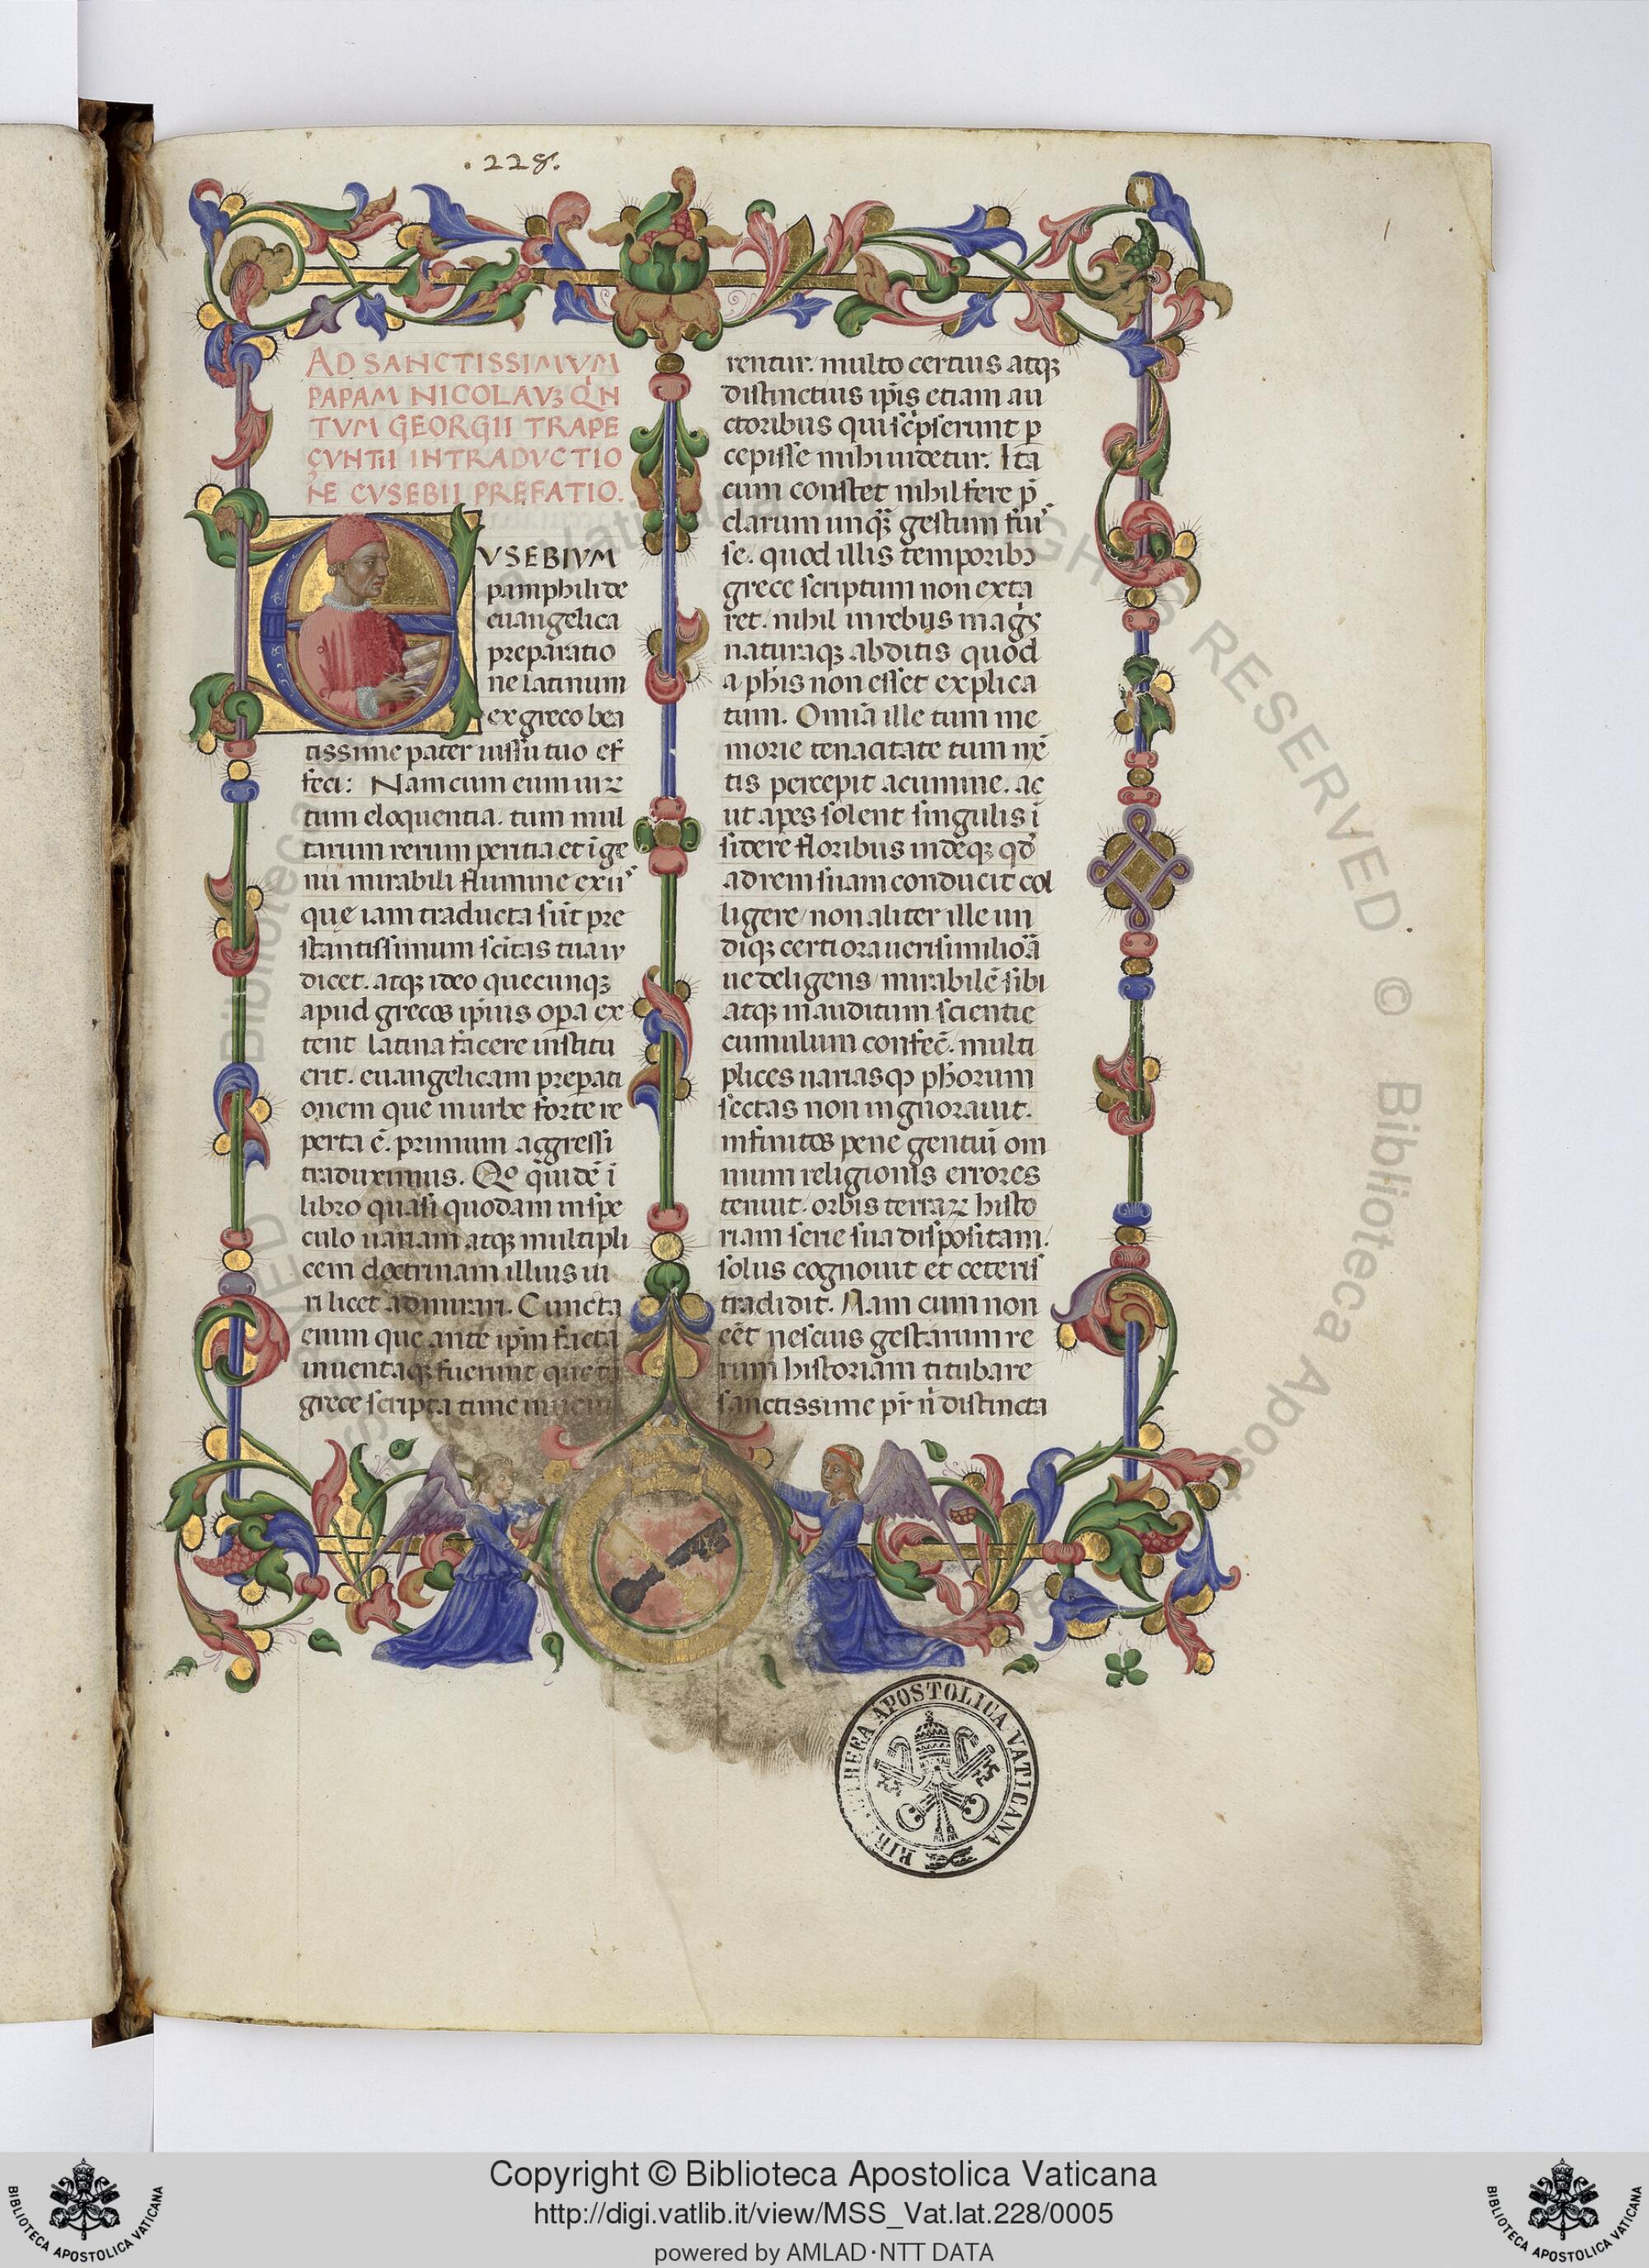 .228.
1
AD SANCTISSIMVM
PAPAM NICOLAVꝫ QN
TVM GEORGII TRAPE
ÇVNTII IN TRADVCTIO
NE EVSEBII PREFATIO.
EVSEBIVM
pamphili de
euangelica
preparatio
ne latinum
ex greco bea
tissime pater iussu tuo ef
feci: Nam cum eum uirꝝ
tum eloquentia. tum mul
tarum rerum peritia et ĩge
nii mirabili flumine ex iis
quę iam traducta sũt pre
stantissimum sc̃itas tua iu
dicet. atqꝫ ideo quecunqꝫ
apud grecos ip̃ius opa ex
tent latina facere institu
erit. euangelicam prepati
onem que in urbe forte re
perta ẽ. primum aggressi
traduximus. Qo quidẽ ĩ
libro quasi quodam in spe
culo uariam atqꝫ multipli
cem doctrinam illius ui
ri licet admirari. Cuncta
enim que ante ip̃m facta
inuentaqꝫ fuerunt que
grece scripta tunc
rentur. multo certius atqꝫ
distinctius ip̃is etiam au
ctoribus qui sc̃pserunt ꝑ
cepisse mihi uidetur. Ita
cum constet nihil fere p̃
clarum unqꝫ gestum fuis
se. quod illis temporibꝫ
grece scriptum non exta
ret. nihil in rebus mags
naturaqꝫ abditis quod
a ph̃is non esset explica
tum. Omnia ille tum me
morie tenacitate tum mẽ
tis percepit acumine. ac
ut apes solent singulis ĩ
sidere floribus indeqꝫ qd̃
ad rem suam conducit col
ligere/ non aliter ille un
diqꝫ certiora uerisimiliora
ue deligens/ mirabilẽ sibi
atqꝫ inauditum scientie
cumulum confec̃. multi
plices uariasqꝫ ph̃orum
sectas non ingnorauit.
infinitos pene gentiũ om
nium religionis errores
tenuit. orbis terraꝝ histo
riam serie sua dispositam.
solus cognouit et ceteris
tradidit. Nam cum non
eẽt nescius gestarum re
rum historiam titubare
sanctissime pr̃ ñ distincta
BIBLIOTHECA APOSTOLICA VATICANA
Copyright © Biblioteca Apostolica Vaticana
http://digi.vatlib.it/view/MSS_Vat.lat.228/0005
powered by AMLAD·NTT DATA
BIBLIOTECA APOSTOLICA VATICANA
BIBLIOTECA APOSTOLICA VATICANA